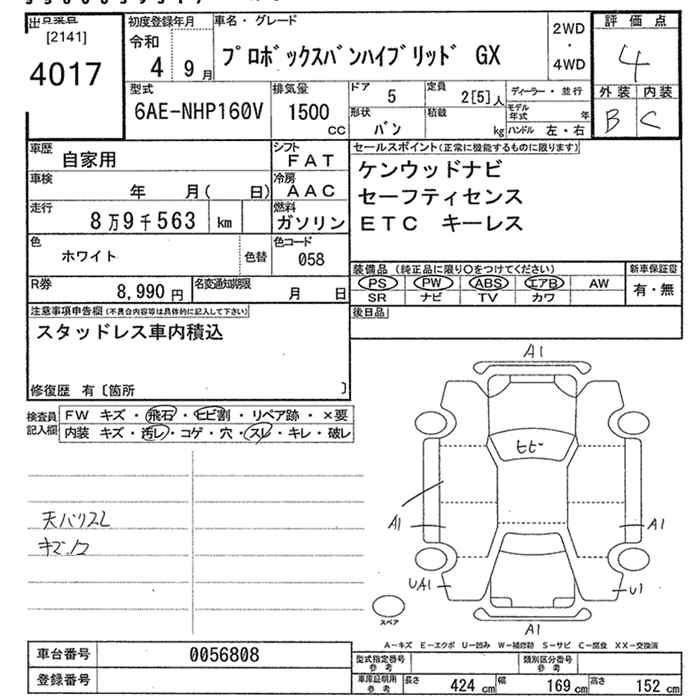 [2141]
4017
初度登録年月
令和
4 9月
車名・グレード
プロボックスバンハイブリッド GX
2WD
・
4WD
評価点
4
外装 内装
B C
型式
6AE-NHP160V
排気量
1500
CC
ドア
5
定員
2[5]人
形状
バン
積載
kg
ディーラー・並行
モデル年式 年
ハンドル 左・右
車歴
自家用
シフト
FAT
車検
年 月( 日)
冷房
AAC
走行
8万9千563 km
燃料
ガソリン
色
ホワイト
色替
色コード
058
R券
8,990 円
名変通知期限
月 日
セールスポイント(正常に機能するものに限ります)
ケンウッドナビ
セーフティセンス
ETC キーレス
装備品 (純正品に限り○をつけてください)
PS PW ABS エアB AW
SR ナビ TV カワ
新車保証書
有・無
後日品
注意事項申告欄(不具合内容等は具体的に記入して下さい)
スタッドレス車内積込
修復歴 有〔箇所 〕
検査員記入欄
FW キズ・飛石・ヒビ割・リペア跡・×要
内装 キズ・汚レ・コゲ・穴・スレ・キレ・破レ
A1
ヒビ
A1
A1
UA1
U1
A1
スペア
A-キズ E-エクボ U-凹み W-補修跡 S-サビ C-腐食 XX-交換済
車台番号 0056808
登録番号
型式指定番号参考
類別区分番号参考
車庫証明用参考
長さ 424 cm 幅 169 cm 高さ 152 cm